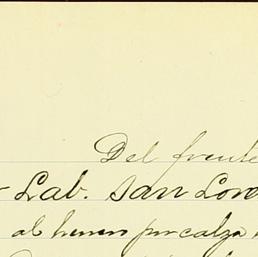 Del frente
Lab. San Lore
al herrero por calza